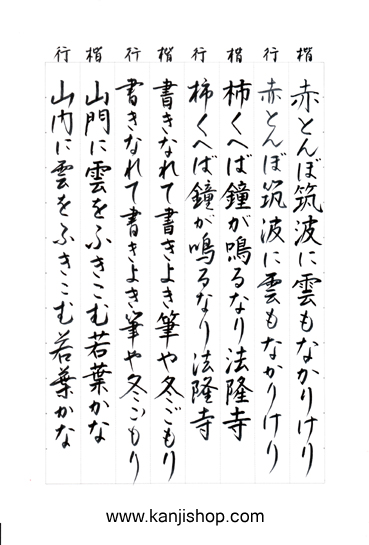 楷 行 楷 行 楷 行 楷 行
赤とんぼ筑波に雲もなかりけり
赤とんぼ筑波に雲もなかりけり
柿くへば鐘が鳴るなり法隆寺
柿くへば鐘が鳴るなり法隆寺
書きなれて書きよき筆や冬ごもり
書きなれて書きよき筆や冬ごもり
山門に雲をふきこむ若葉かな
山内に雲をふきこむ若葉かな
www.kanjishop.com